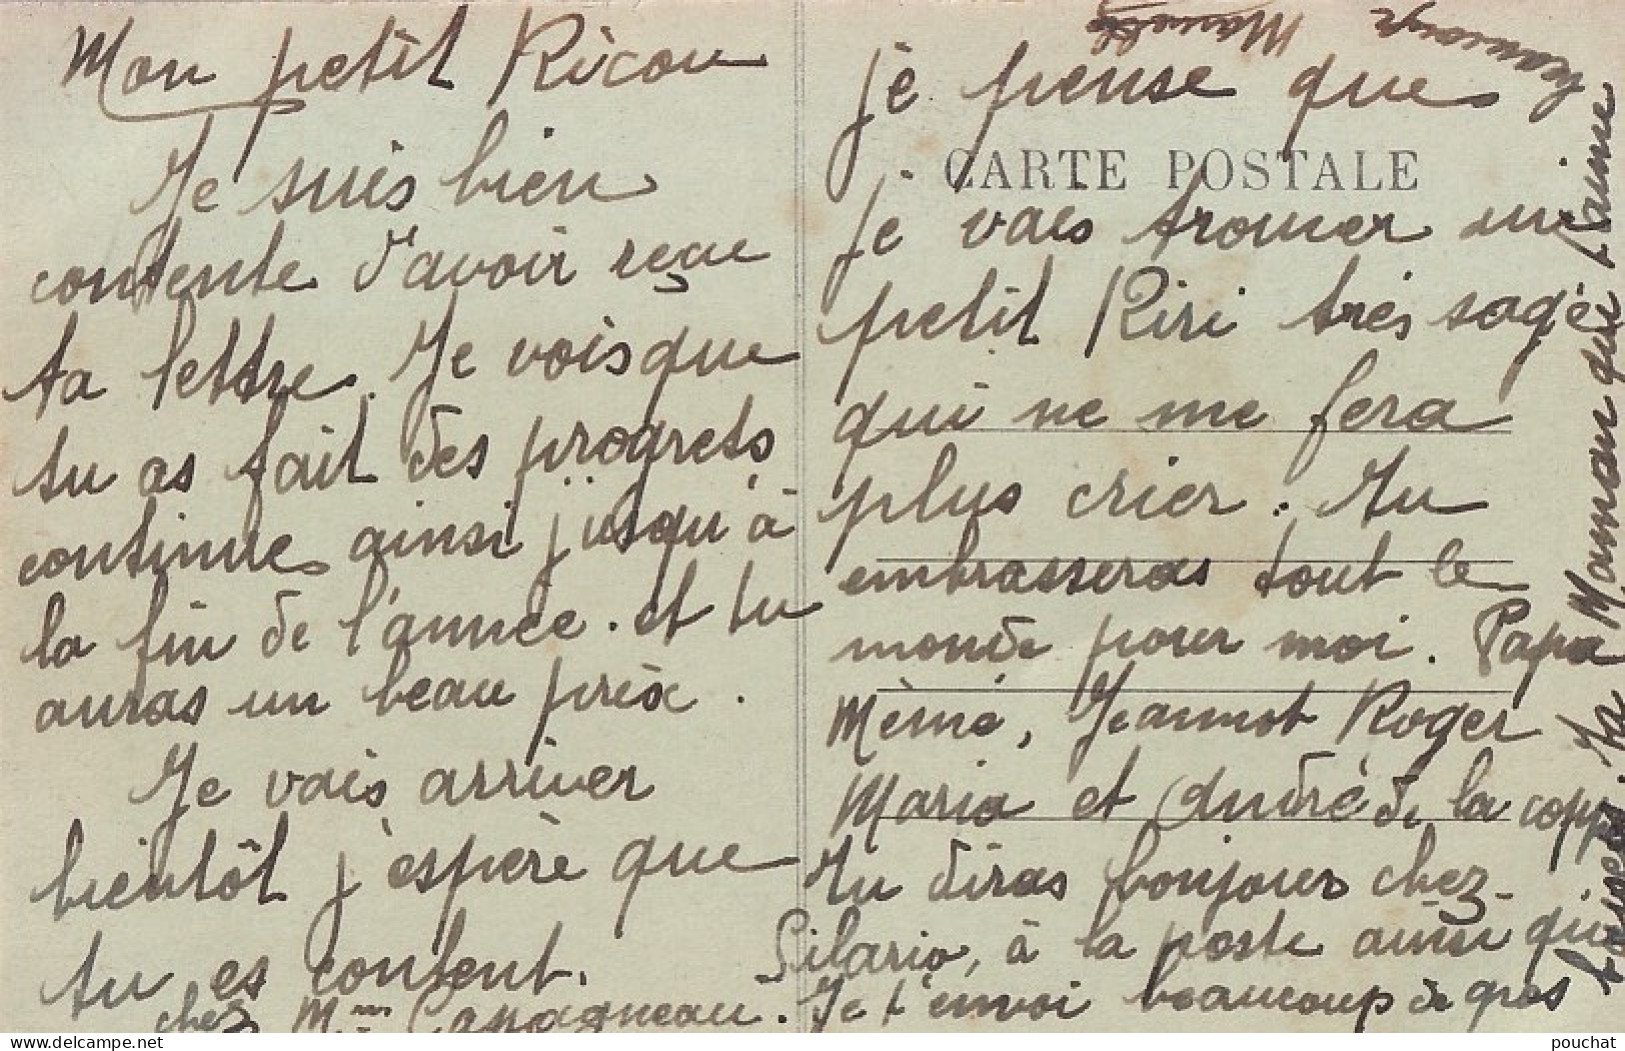 Mon petit Ricou
Je suis bien
contente d'avoir reçue
ta lettre. Je vois que
tu as fait des progrets
continue ainsi jusqu'à
la fin de l'année. et tu
auras un beau prix.
Je vais arriver
bientôt j'espère que
tu es content.
je pense que
CARTE POSTALE
je vais trouver un
petit Riri très sage
qui ne me fera
plus crier. Tu
embrasseras tout le
monde pour moi. Papa
Mèmé, Jeannot Roger
Maria et André de la coop
Tu diras bonjour chez
Silario, à la poste ainsi qui
chez Mme Capagneau. Je t'envoi beaucoup de gros
baisers. Ta Maman qui t'aime
delcampe.net
pouchat